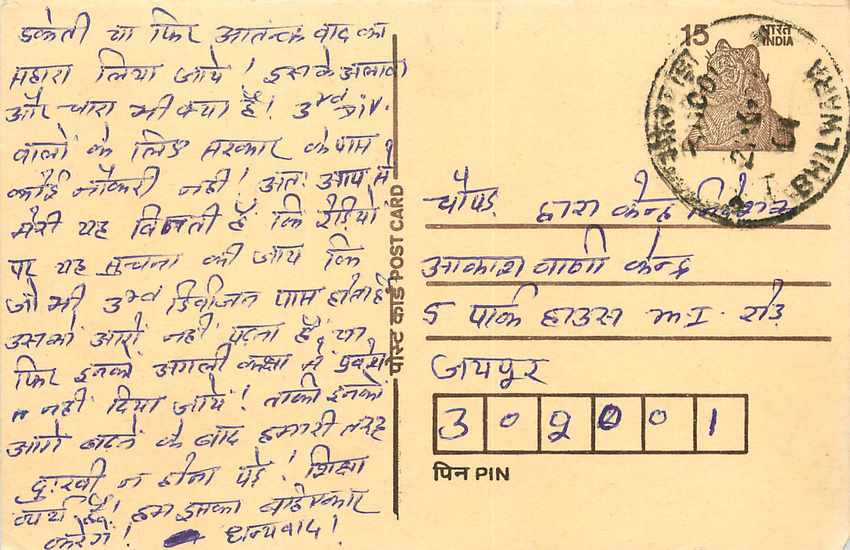 डकेती या फिर आतन्क वाद का
सहारा लिया जाये ! इसके अलावा
और चारा भी क्या है ! 3rd Div.
वालों के लिए सरकार के पास
कोई नौकरी नहीं ! अतः आप से
मेरी यह विनती है कि रेडियो
पर यह सुचना की जाय कि
जो भी 3rd डिवीजन पास होता है
उसको आगे नहीं पढ़ना है, या
फिर इनको अगली कक्षा में प्रवेश
न नहीं दिया जाये ! ताकी इनको
आगे बढ़ने के बाद हमारी तरह
दुःखी न होना पड़े ! शिक्षा
व्यर्थ है ! हम इसका बहिष्कार
करेंगे ! धन्यवाद !
पोस्ट कार्ड POST CARD
15 भारत
INDIA
BHILWARA
चौपड़ द्वारा केन्द्र निदेशक
आकाशवाणी केन्द्र
5 पार्क हाउस M.I. रोड
जयपुर
302001
पिन PIN